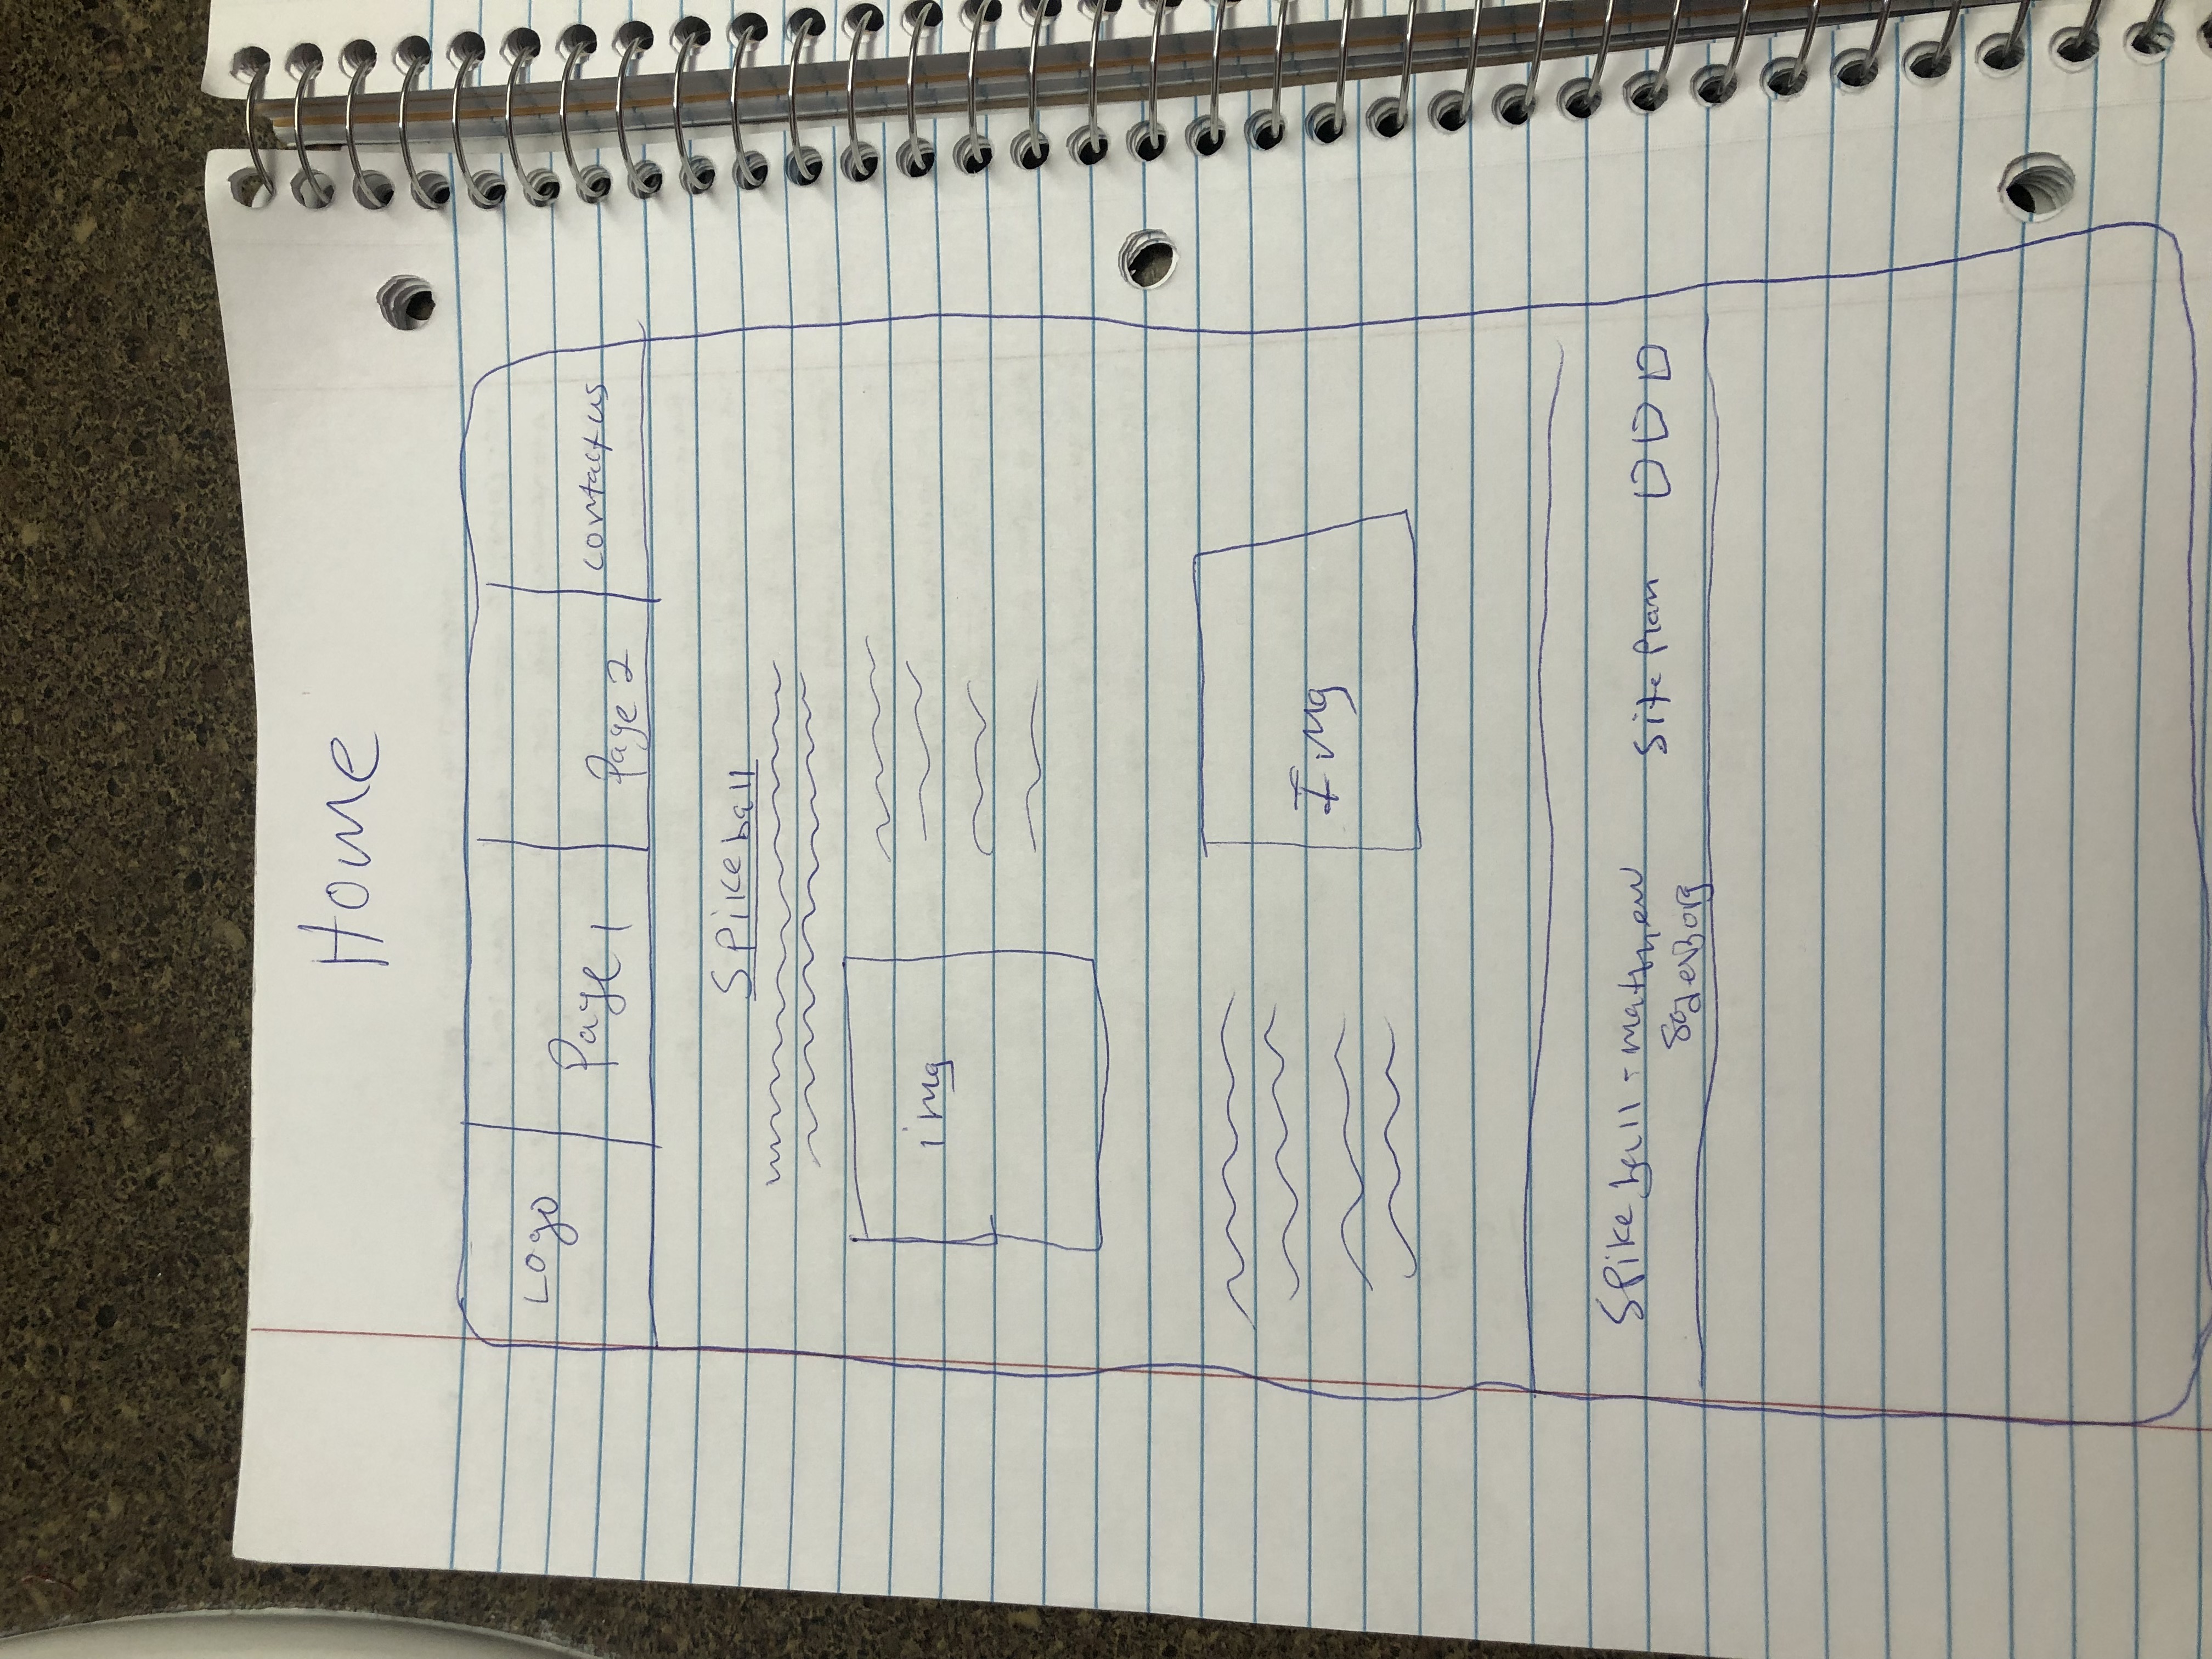 Home
Logo Page 1 Page 2 contact us
Spikeball
img
Img
Spikeball - matthew Site Plan